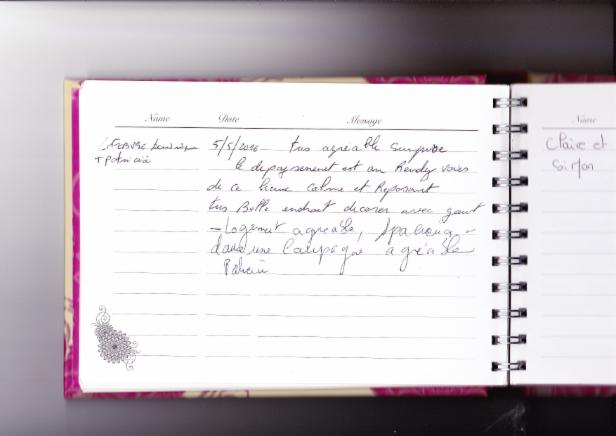 Name Date Message Name
LEFEBVRE Dominique 5/5/2016 - très agréable surprise
+ patricia le depaysement est au Rendez vous
de ce lieu calme et Reposant
très Belle endroit decorer avec gout
- Logement agréable, Spacieux -
dans une Campagne agréable
Patricia
Claire et